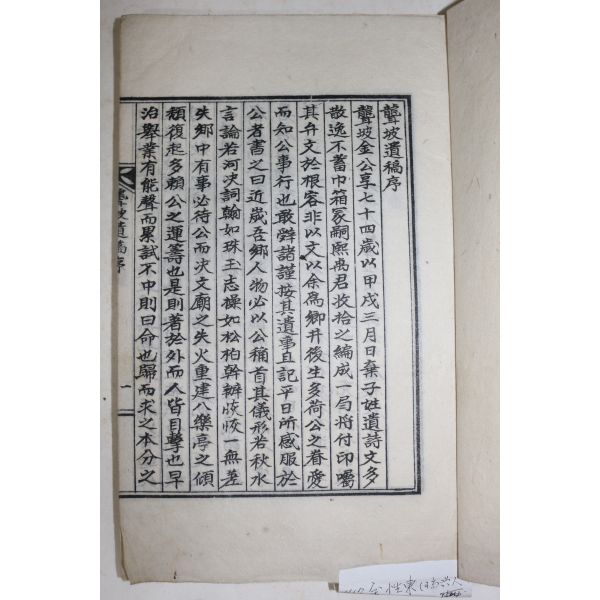 聾坡遺稿序
聾坡金公享七十四歲以甲戌三月日棄子姓遺詩文多
散逸不蓄巾箱冢嗣熙禹君收拾之編成一局將付印囑
其弁文於根容非以文以余爲鄕井後生多荷公之眷愛
而知公事行也敢辭諸謹按其遺事且記平日所感服於
公者書之曰近歲吾鄕人物必以公稱首其儀形若秋水
言論若河決詞翰如珠玉志操如松柏幹辦恢恢一無差
失鄕中有事必待公而決文廟之失火重建八樂亭之傾
頹復起多賴公之運籌也是則著於外而人皆目擊也早
治擧業有能聲而累試不中則曰命也歸而求之本分之
聾坡遺稿序
一